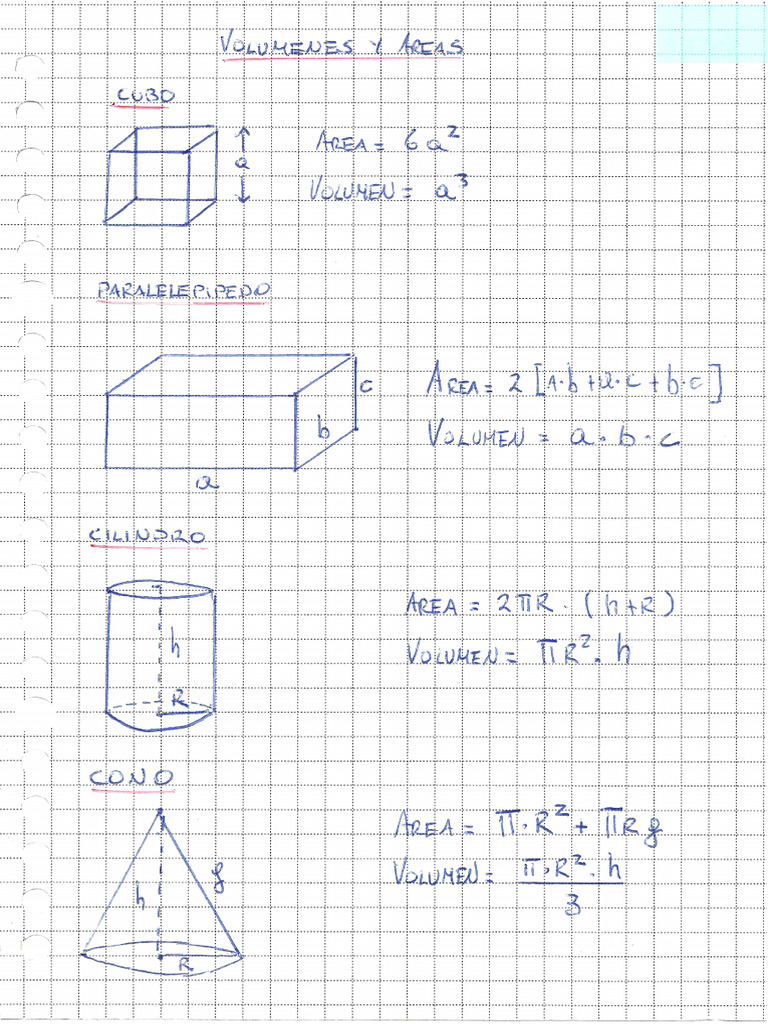 VOLUMENES Y AREAS
CUBO
a
AREA = 6a²
VOLUMEN = a³
PARALELEPIPEDO
c
b
a
AREA = 2 [A·b+a·c+b·c]
VOLUMEN = a·b·c
CILINDRO
h
R
AREA = 2πR·(h+R)
VOLUMEN = πR²·h
CONO
h
g
R
AREA = π·R²+πRg
VOLUMEN = π·R²·h
3